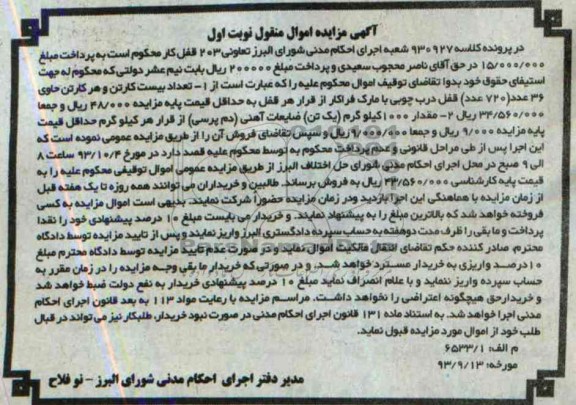 آگهی مزایده اموال منقول نوبت اول
در پرونده کلاسه ۹۳۰۹۲۷ شعبه اجرای احکام مدنی شورای البرز تعاونی ۲۰۳ قفل کار محکوم است به پرداخت مبلغ
۱۵/۰۰۰/۰۰۰ در حق آقای ناصر محجوب سعیدی و پرداخت مبلغ ۲۰۰۰۰۰ ریال بابت نیم عشر دولتی که محکوم له جهت
استیفای حقوق خود بدوا تقاضای توقیف اموال محکوم علیه را که عبارت است از ۱- تعداد بیست کارتن و هر کارتن حاوی
۳۶ عدد (۷۲۰ عدد) قفل درب چوبی با مارک فراکار از قرار هر قفل به حداقل قیمت پایه مزایده ۴۸/۰۰۰ ریال و جمعا
۳۴/۵۶۰/۰۰۰ ریال ۲- مقدار ۱۰۰۰ کیلو گرم (یک تن) ضایعات آهنی (دم پرسی) از قرار هر کیلو گرم حداقل قیمت
پایه مزایده ۹/۰۰۰ ریال و جمعا ۹/۰۰۰/۰۰۰ ریال و سپس تقاضای فروش آن را از طریق مزایده عمومی نموده است که
این اجرا پس از طی مراحل قانونی و عدم پرداخت محکوم به توسط محکوم علیه قصد دارد در مورخ ۹۳/۱۰/۴ ساعت ۸
الی ۹ صبح در محل اجرای احکام مدنی شورای حل اختلاف البرز از طریق مزایده عمومی اموال توقیفی محکوم علیه را به
قیمت پایه کارشناسی ۴۳/۵۶۰/۰۰۰ ریال به فروش برساند. طالبین و خریداران می توانند همه روزه تا یک هفته قبل
از زمان مزایده با هماهنگی این اجرا بازدید ودر زمان مزایده حضورا شرکت نمایند. بدیهی است اموال مزایده به کسی
فروخته خواهد شد که بالاترین مبلغ را به پیشنهاد نمایند. و خریدار می بایست مبلغ ۱۰ درصد پیشنهادی خود را نقدا
پرداخت و ما بقی را ظرف مدت دوهفته به حساب سپرده دادگستری البرز واریز نمایند و پس از تایید مزایده توسط دادگاه
محترم، صادر کننده حکم تقاضای انتقال مالکیت اموال نماید و در صورت عدم تایید مزایده توسط دادگاه محترم مبلغ
۱۰ درصد واریزی به خریدار مسترد خواهد شد. و در صورتی که خریدار ما بقی وجه مزایده را در زمان مقرر به
حساب سپرده واریز ننماید و یا اعلام انصراف نماید مبلغ ۱۰ درصد پیشنهادی خریدار به نفع دولت ضبط خواهد شد
و خریدار حق هیچگونه اعتراضی را نخواهد داشت. مراسم مزایده با رعایت مواد ۱۱۳ به بعد قانون اجرای احکام
مدنی اجرا خواهد شد. به استناد ماده ۱۳۱ قانون اجرای احکام مدنی در صورت نبود خریدار، طلبکار نیز می تواند در قبال
طلب خود از اموال مورد مزایده قبول نماید.
م الف: ۶۵۳۳/۱
مورخه: ۹۳/۹/۱۳
مدیر دفتر اجرای احکام مدنی شورای البرز - نو فلاح